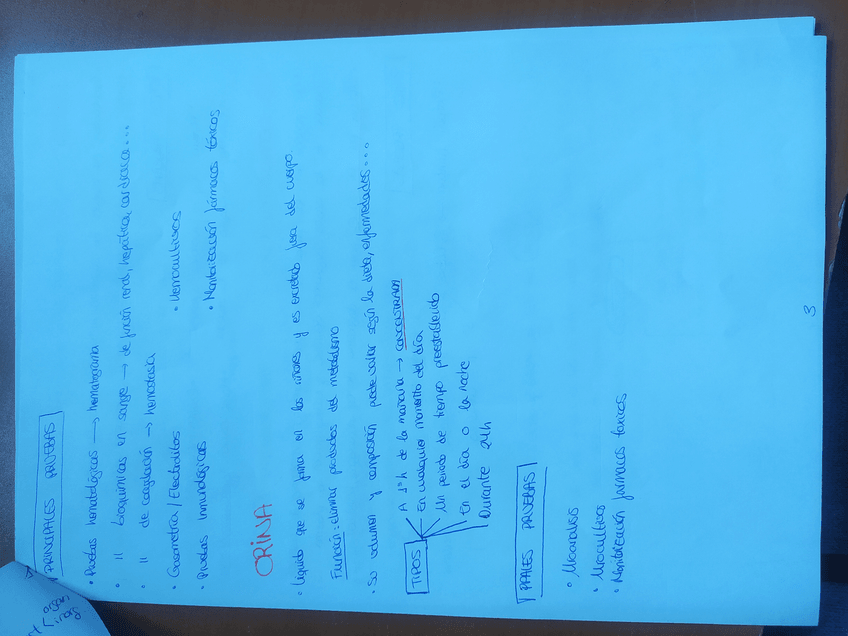 PRINCIPALES PRUEBAS
• Pruebas hematológicas → hematograma
• " bioquímicas en sangre → de función renal, hepática, cardiaca...
• " de coagulación → hemostasia
• Gasometría / Electrolitos • Hemocultivos
• Pruebas inmunológicas • Monitorización fármacos tóxicos
ORINA
• Líquido que se forma en los riñones y es excretado fuera del cuerpo.
Función: eliminar productos del metabolismo
• Su volumen y composición puede variar según la dieta, enfermedades...
TIPOS
A 1ª h de la mañana → CONCENTRADA
En cualquier momento del día
Un periodo de tiempo preestablecido
En el día o la noche
Durante 24h
PPALES PRUEBAS
• Uroanálisis
• Urocultivos
• Monitorización fármacos tóxicos
3